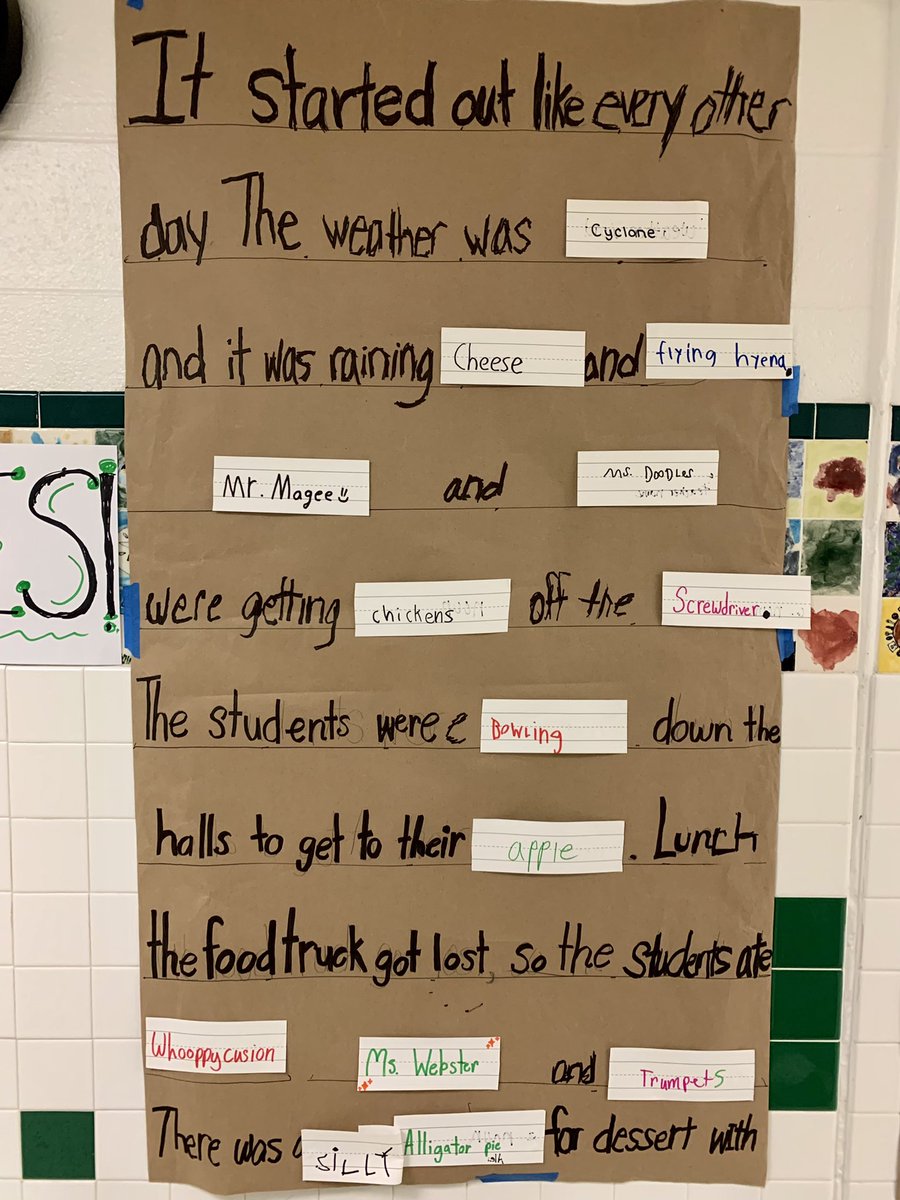 It started out like every other
day The weather was Cyclone
and it was raining Cheese and flying hyena.
Mr. Magee and Ms. Doodles
were getting chickens off the Screwdriver.
The students were Bowling down the
halls to get to their apple. Lunch
the food truck got lost, so the students ate
Whooppycusion Ms. Webster and Trumpets
There was a SiLLY Alligator pie for dessert with
ESI